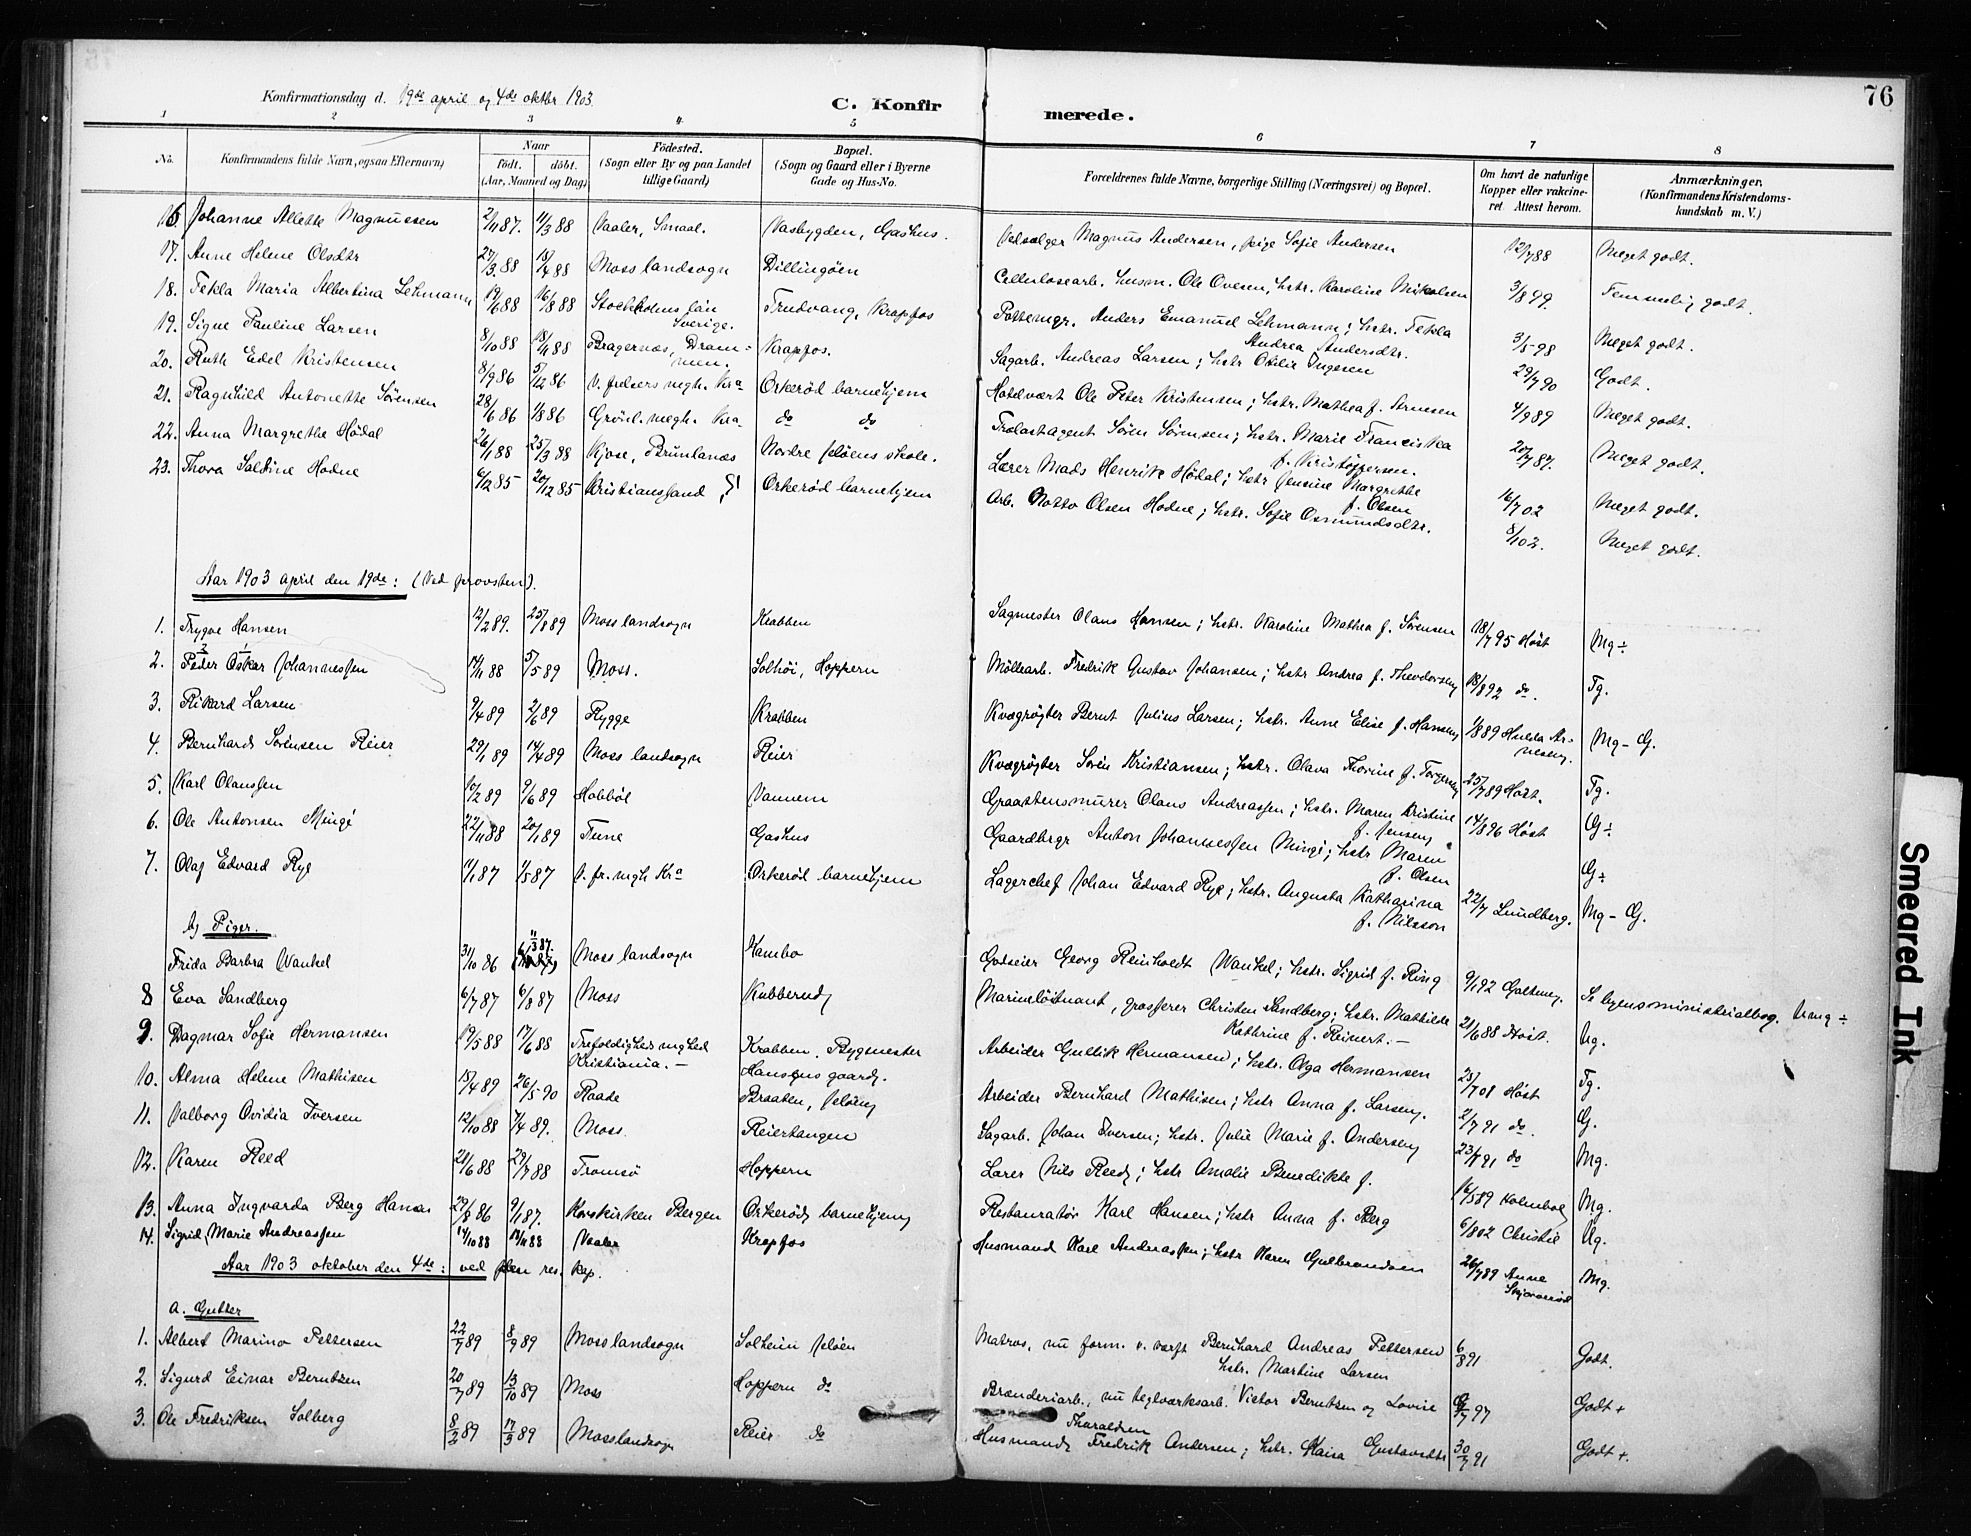 76
Konfirmationsdag d. 19de april og 4de oktbr 1903.
C. Konfirmerede.
1 2 3 4 5 6 7 8
No. Konfirmandens fulde Navn, ogsaa Efternavn) Naar født. døbt. (Aar, Maaned og Dag) Fødested. (Sogn eller By og paa Landet tillige Gaard) Bopæl. (Sogn og Gaard eller i Byerne Gade og Hus-No. Forældrenes fulde Navne, borgerlige Stilling (Næringsvei) og Bopæl. Om havt de naturlige Kopper eller vakcineret. Attest herom. Anmærkninger. (Konfirmandens Kristendomskundskab m. V.)
16 Johanne Alette Magnussen 2/11 87. 11/3 88 Vaaler, Smaal. Vasbygden, Gashus. Vedsælger Magnus Andersen, pige Sofie Andersen 12/7 88 Meget godt.
17. Anne Helene Olsdtr 27/3 88 15/4 88 Moss landsogn Dillingøen Cellulosearb. husm. Ole Ovesen, hstr. Karoline Nikolsen 3/8 99. Temmelig godt.
18. Tekla Maria Albertina Lehmann 19/6 88 16/8 88 Stockholms län Sverige. Trudvang, Krapfos Pottemgr. Anders Emanuel Lehmann; hstr. Tekla Andrea Andersdtr. 3/5 98 Meget godt.
19. Signe Pauline Larsen 8/10 88 18/11 88 Bragernæs, Drammen. Krapfos. Sagarb. Andreas Larsen; hstr Otilie Ingesen 29/7 90 Godt.
20. Ruth Edel Kristensen 8/9 86 5/12 86 V. frelsers mgh. Kra Orkerød barnehjem Hotelvært Ole Peter Kristensen; hstr. Mathea f. Arnesen 4/9 89 Meget godt.
21. Ragnhild Antonette Sørensen 28/6 86 1/8 86 Grønl. megh. Kra do do Trælastagent Søren Sørensen; hstr. Marie Franciska f. Kristoffersen. 20/7 87. Meget godt.
22. Anna Margrethe Hødal 26/1 88 25/3 88 Kjose, Brunlanæs Nordre Jeløens skole. Lærer Mads Henrik Hødal; hstr Jensine Margrethe f. Olsen 16/7 02 Meget godt.
23. Thora Saldine Hodne 6/12 85 20/12 85 Kristianssand Orkerød barnehjem Arb. Notto Olsen Hodne; hstr. Sofie Osmundsdtr. 8/1 02. Meget godt.
Aar 1903 april den 19de: (Ved provsten).
1. Trygve Hansen 12/2 89. 25/8 89 Moss landsogn Krabben Sagmester Olaus Hansen; hstr. Karoline Mathea f. Sørensen 18/7 95 Høst Mg÷
2. Peder Oskar Johannessen 14/11 88 5/5 89 Moss. Solhøi, Hoppern Møllearb. Fredrik Gustav Johansen; hstr Andrea f. Theodorsen 18/8 92 do. Tg.
3. Rikard Larsen 9/4 89 2/6 89 Rygge Krabben Kvægrøgter Bernt Julius Larsen; hstr. Anne Elise f. Hansen 1/8 89 Hulda Arnesen. Mg – G.
4. Bernhard Sørensen Reier 29/1 89 14/4 89 Moss landsogn Reier Kvægrøgter Søren Kristiansen; hstr. Olava Thorine f. Torgersen 25/7 89 Høst. Tg.
5. Karl Olaussen 10/2 89 9/6 89 Hobbøl Vannem Graastensmurer Olaus Andreassen; hstr. Maren Kristine f. Jensen 14/8 96 Høst G÷
6. Ole Antonsen Minge 22/11 88 20/1 89 Tune Gashus Gaardbrgr Anton Johannessen Minge; hstr Maren f. Olsen G÷
7. Olaf Edvard Rye 11/1 87 1/5 87 V. fr. mgh Kra Orkerød barnehjem Lagerchef Johan Edvard Rye; hstr. Augusta Katharina f. Nilsson 22/7 Lundberg. Mg – G.
b) Piger.
Frida Barbra Wankel 31/10 86 11/3 87. Moss landsogn Kambo Godseier Georg Reinholdt Wankel; hstr. Sigrid f. Ring 9/1 92 Se byens ministrialbog. Umg ÷
8 Eva Sandberg 6/7 87 6/8 87 Moss Kubberud Marineløitnant, grosserer Christen Sandberg; hstr. Mathilde Kathrine f. Reinert. – 21/6 88 Høst. Ug.
9. Dagmar Sofie Hermansen 19/5 88 17/6 88 Trefoldigheds mghed Kristiania. – Krabben. Bygmester Hansens gaard. Arbeider Gullik Hermansen; hstr. Olga Hermansen 25/7 01 Høst Tg.
10. Alma Helene Mathisen 15/4 89 26/5 90 Raade Braaten, Jeløen Arbeider Bernhard Mathisen; hstr Anna f. Larsen. 2/7 91 do. G.
11. Valborg Ovidia Iversen 12/10 88 7/4 89. Moss. Reiertangen Sagarb. Johan Iversen; hstr. Julie Marie f. Andersen 23/7 91 do Mg.
12. Karen Reed 21/6 88 29/7 88 Tromsø Hoppern Lærer Nils Reed; hstr Amalie Benedikte f. 16/5 89 Holmboe Mg.
13. Anna Ingvarda Berg Hansen 29/8 86 9/1 87. Korskirken Bergen Orkerød barnehjem Restauratør Karl Hansen; hstr Anna f. Berg 6/8 02 Christie Ug.
14. Sigrid Marie Andreassen 14/10 88 14/11 88 Vaaler Krapfos Husmand Karl Andreassen; hstr Karen Gulbrandsen 26/7 89 Anne Skjævesrød Mg.
Aar 1903 oktober den 4de: ved den res. kap.
a. Gutter
1. Albert Marino Pettersen 22/7 89 8/9 89 Moss landsogn Solheim Jeløen Matros, nu form. v. værft Bernhard Andreas Pettersen hstr. Martine Larsen 6/8 91 Godt.
2. Sigurd Einar Berntzen 20/7 89 13/10 89 Moss Hoppern do Brænderiarb., nu teglværksarb. Victor Berntzen og Lovise Tharaldsen 9/7 97 Godt +
3. Ole Fredriksen Solberg 8/2 89 17/3 89 Moss landsogn Reier do Husmand Fredrik Andersen; hstr. Kaisa Gustavsdtr 30/7 91 Godt +.
Smeared Ink